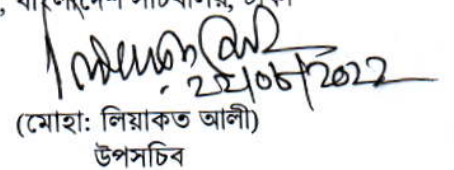 বাংলাদেশ সচিবালয়, ঢাকা
২২/০৬/2022
(মোহা: লিয়াকত আলী)
উপসচিব